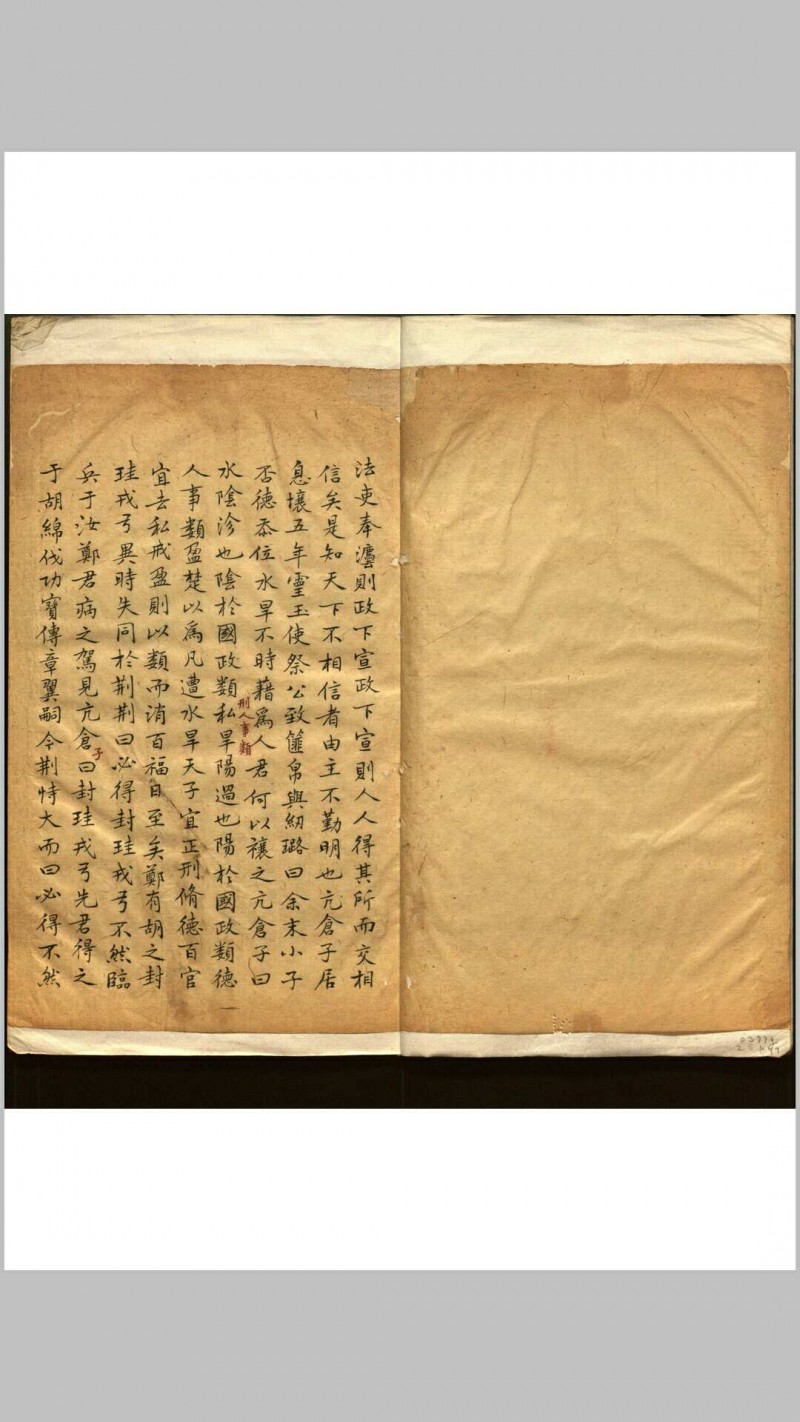 法吏奉灋則政下宣政下宣則人人得其所而交相
信矣是知天下不相信者由主不勤明也亢倉子居
息壤五年靈王使祭公致篚帛與紉璐曰余末小子
否德忝位水旱不時藉爲人君何以禳之亢倉子曰
水陰沴也陰於國政類私旱陽過也陽於國政類德
刑人事類
人事類盈楚以爲凡遭水旱天子宜正刑脩德百官
宜去私戒盈則以類而消百福日至矣鄭有胡之封
珪戎弓異時失同於荆荆曰必得封珪戎弓不然臨
兵于汝鄭君病之駕見亢倉曰封珪戎弓先君得之
子
于胡綿伐功寶傳章翼嗣今荆恃大而曰必得不然